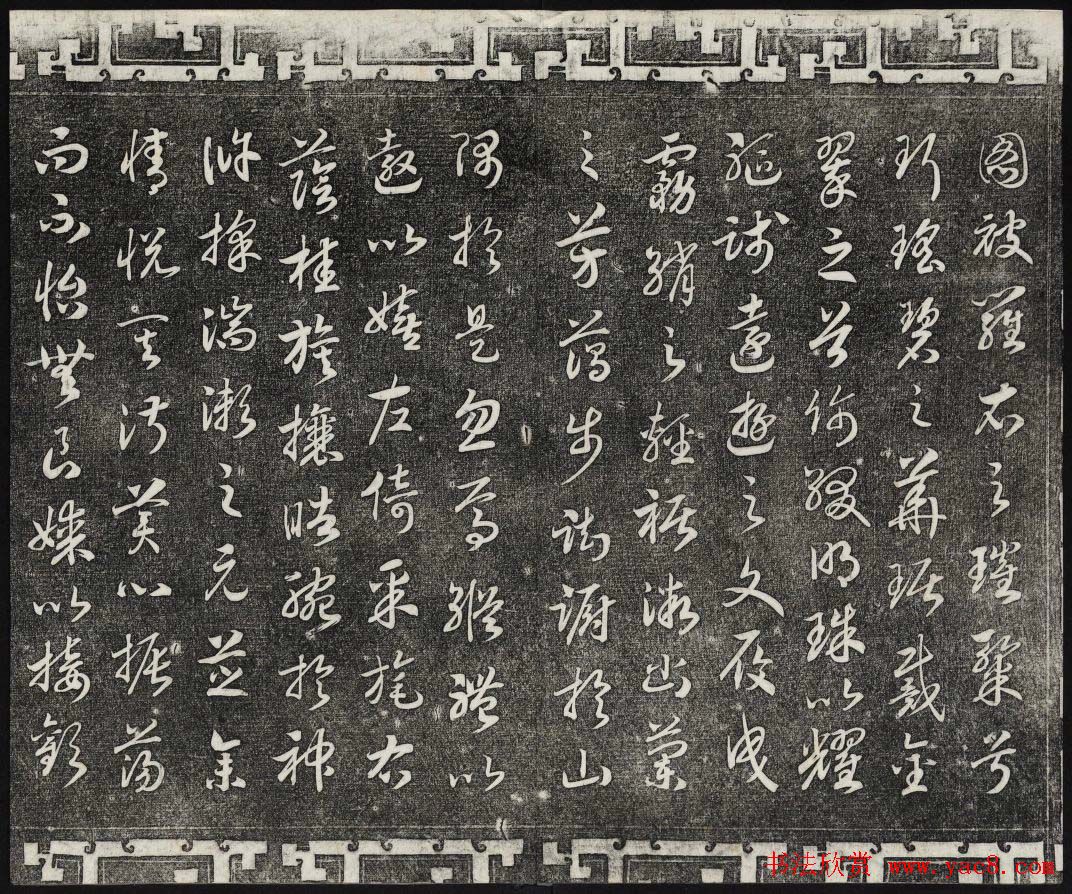 圖被羅衣之璀粲兮
珥瑤碧之華琚戴金
翠之首飾綴明珠以耀
軀踐遠遊之文履曳
霧綃之輕裾微幽蘭
之芳藹步踟躕於山
隅於是忽焉縱體以
遨以嬉左倚采旄右
蔭桂旗攘皓腕於神
滸採湍瀨之元芝余
情悅其淑美心振蕩
而不怡無良媒以接歡
书法欣赏 www.yac8.com